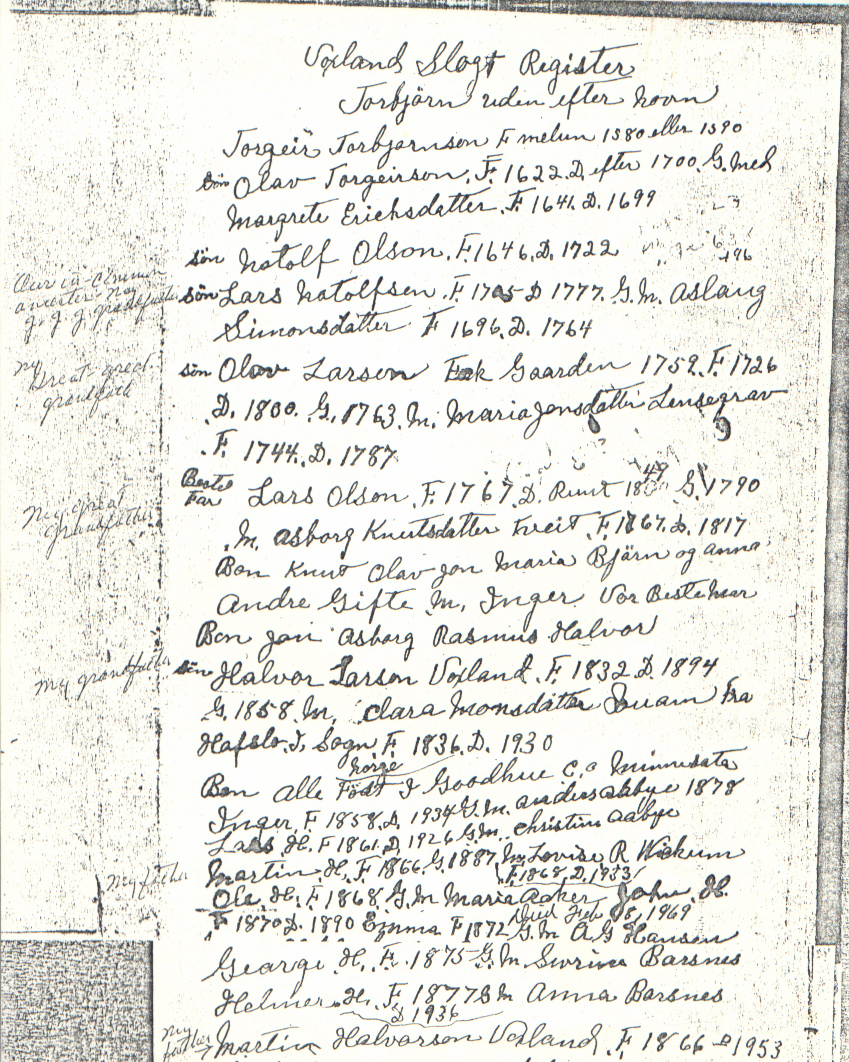 Voxland Slogt Register
Torbjörn uden efter novn
Torgeir Torbjornson F melum 1580 eller 1590
sön Olav Torgeirson. F. 1622. D. efter 1700. G. med
Margrete Erichsdatter. F. 1641. D. 1699
sön Natolf Olson. F. 1646. D. 1722
196
Our in-common
ancester - my
g. g. g. grandfather
sön Lars Natolfsen. F. 1705 D 1777. G. M. Aslaug
Simonsdatter F 1696. D. 1764
my
Great-great-
grandfath
sön Olav Larson Gaarden 1759. F. 1726
D. 1800. G. 1763. M. Maria Jensdatter Lensegrav
F. 1744. D. 1787
Beste
Far Lars Olson. F. 1767. D. Runt 1849 G. 1790
my great
grandfather
M. Asborg Knutsdatter Tveit. F. 1767. D. 1817
Bon Knut Olav Jon Maria Björn og Anna
Andre Gifte M. Inger Vor Bestemar
Bon Jon Asborg Rasmus Halvor
my grandfather
sön Halvor Larson Voxland. F. 1832 D. 1894
G. 1858. M. Clara Monsdatter Quam Fra
Hafslo. I. Sogn F. 1836. D. 1930
Norge
Bon alle Födt I Goodhue C.o Minnesota
Inger. F 1858. D. 1934 G. M. Anders Aabye 1878
Lars H. F 1861. D. 1926 G. M. Christine Aabye
Martin H. F. 1866. G. 1887. M. Lovise R Wickum
F. 1868. D. 1933
my father
Ole H. F. 1868. G. M Maria Aaker John H.
Died Feb 08, 1969
F 1870 D. 1890 Emma F 1872 G. M A. G Hanson
George H. F. 1875 G. M Barsnes
Helmer H. F. 1877 G M Anna Barsnes
D 1936
my
father Martin Halvorson Voxland. F 1866 - D 1953